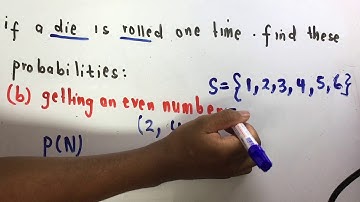 if a die is rolled one time . find these
probabilities:
S={1,2,3,4,5,6}
(b) getting an even number
(2,
P(N)